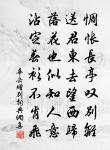 惆悵長亭又別離
送君東去望西歸
落花也似知人意
沾定衫不肯飛